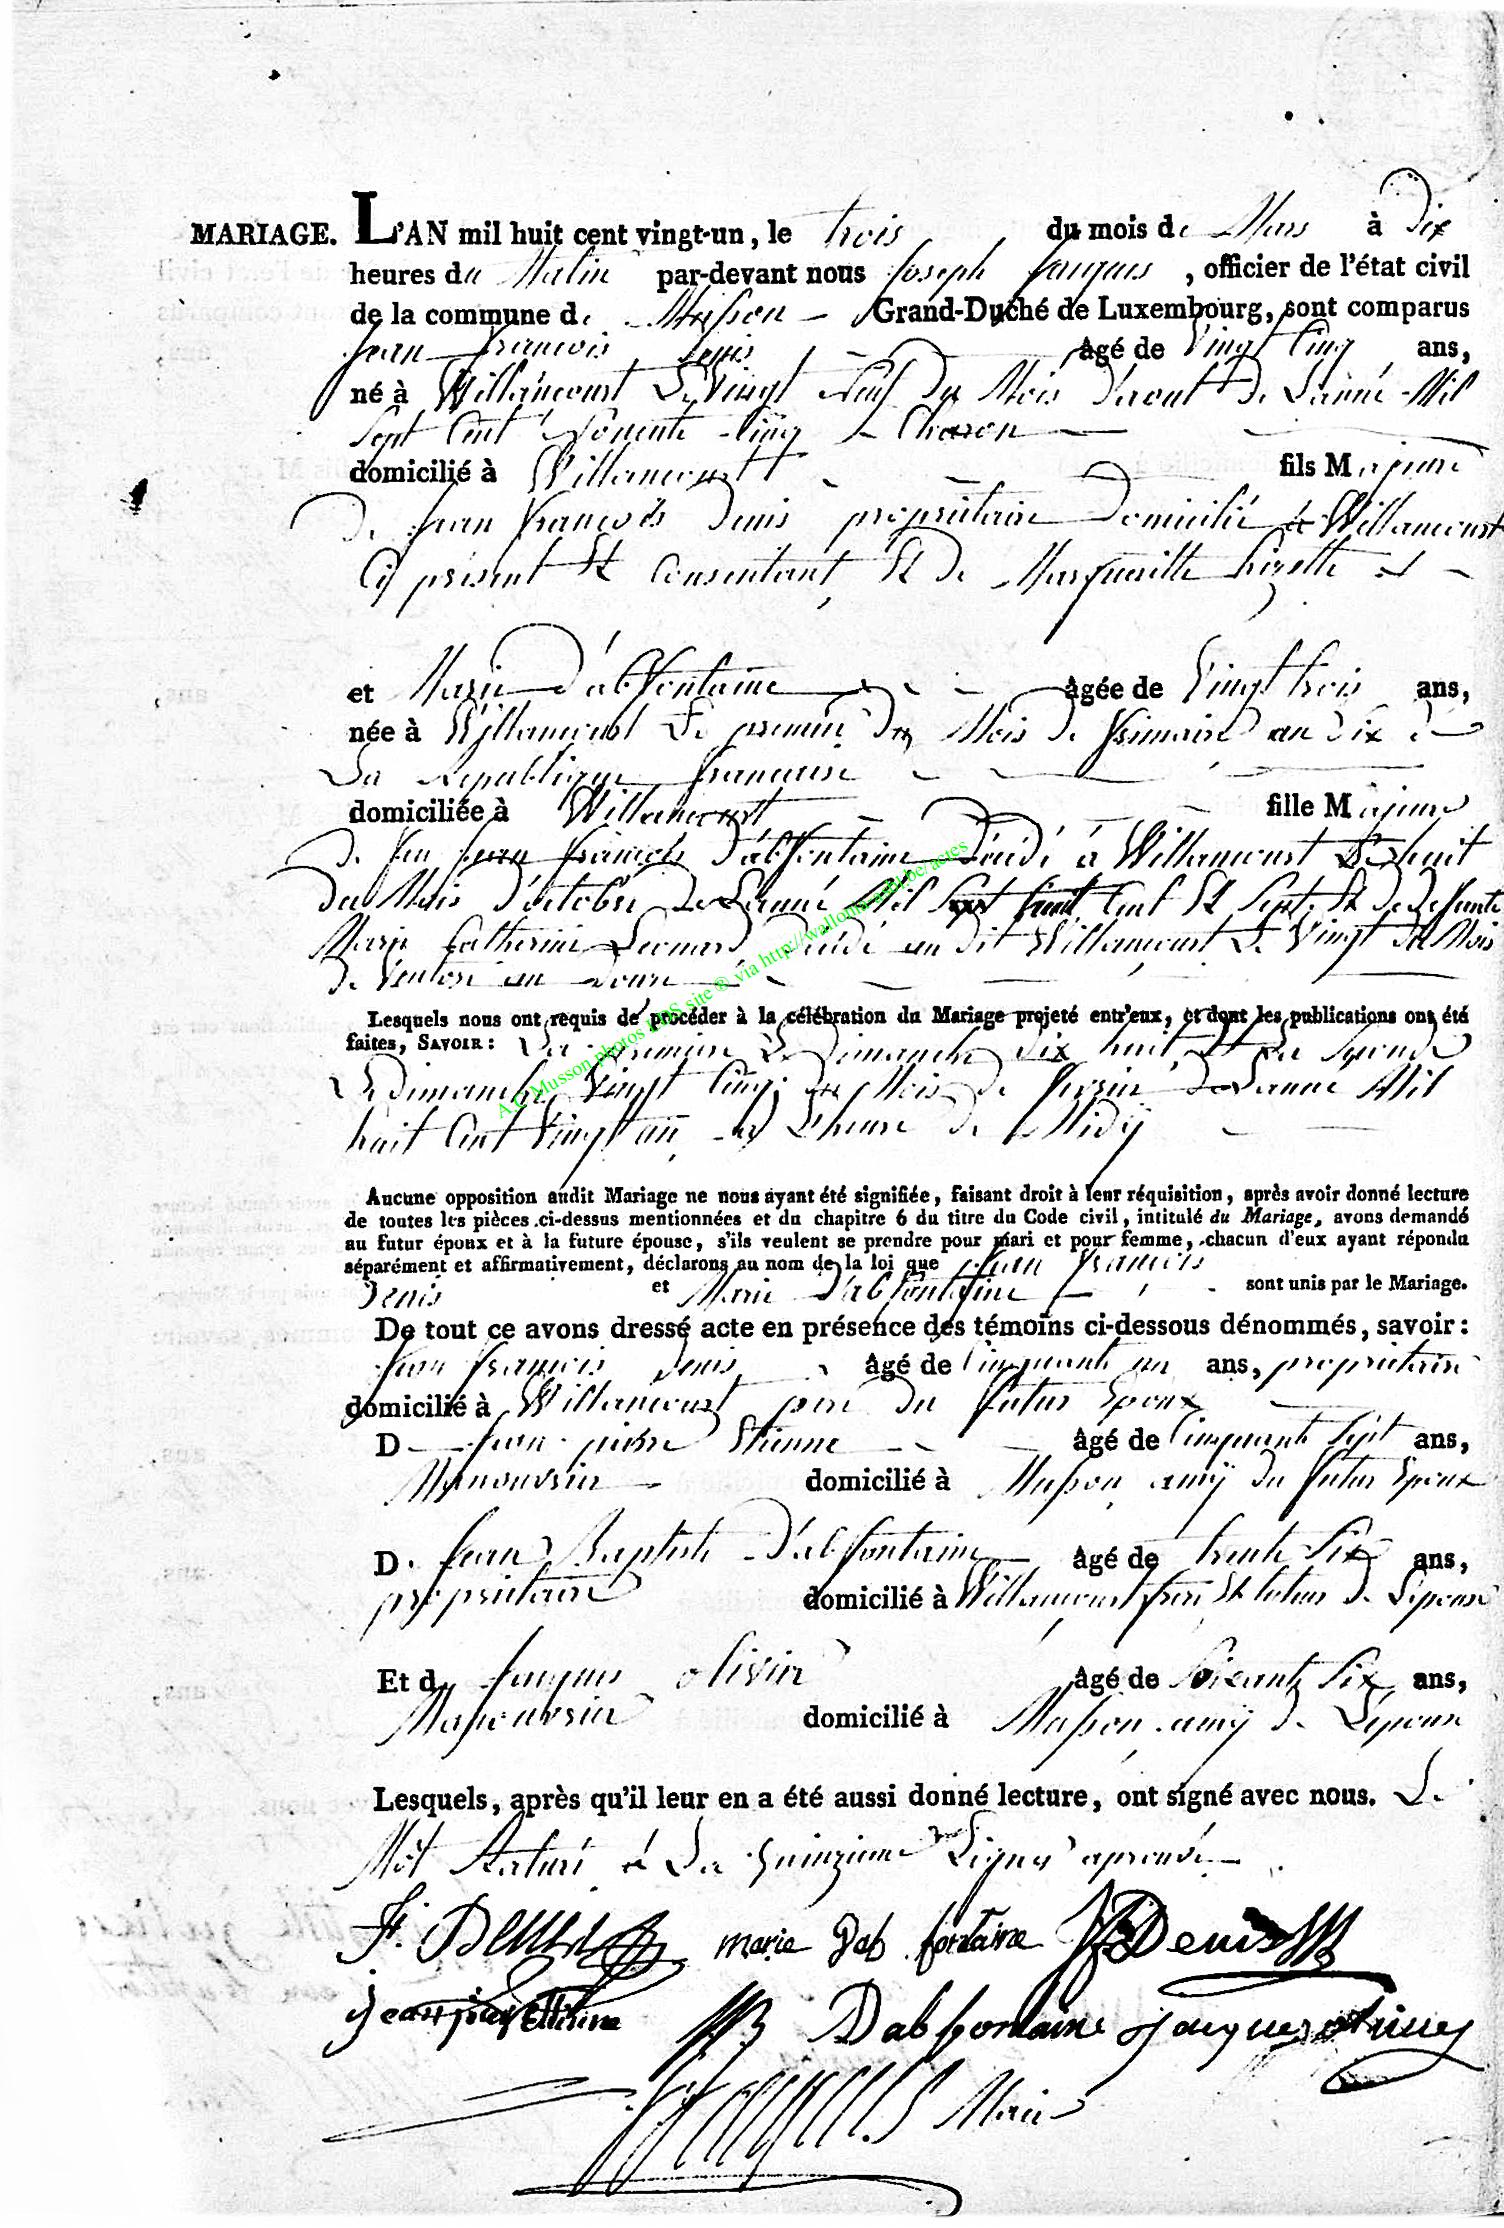 MARIAGE. L'AN mil huit cent vingt-un, le trois du mois de Mars à Dix
heures du Matin par-devant nous Joseph Jacques, officier de l'état civil
de la commune de Musson – Grand-Duché de Luxembourg, sont comparus
Jean François Denis âgé de Vingt Cinq ans,
né à Willancourt Le Vingt neuf Du Mois D'aout De L'année Mil
Sept Cent Nonente Cinq
domicilié à Willancourt fils Majeure
De Jean François Denis propriétaire Domicilié à Willancourt
Cy présent Et Consentant, Et De Margueritte
et Marie D'abfontaine âgée de Vingt trois ans,
née à Willancourt Le premier Du Mois De frimaire an dix de
La Republique francaise
domiciliée à Willancourt fille Majeure
De feu Jean François D'abfontaine Décidé à Willancourt Le huit
Du Mois D'octobre De L'année Mil huit Cent Et Sept, Et De defunte
Marie Catherine Leonard Décidé au dit Willancourt Le Vingt du Mois
De Ventose an Douze
Lesquels nous ont requis de procéder à la célébration du Mariage projeté entr'eux, et dont les publications ont été
faites, SAVOIR: La première Le Dimanche dix huit Et La Seconde
Le dimanche Vingt Cinq du Mois De fevrier De L'année Mil
huit Cent Vingt un à L'heure De Midy
Aucune opposition audit Mariage ne nous ayant été signifiée, faisant droit à leur réquisition, après avoir donné lecture
de toutes les pièces ci-dessus mentionnées et du chapitre 6 du titre du Code civil, intitulé du Mariage, avons demandé
au futur époux et à la future épouse, s'ils veulent se prendre pour mari et pour femme, chacun d'eux ayant répondu
séparément et affirmativement, déclarons au nom de la loi que Jean François
Denis et Marie D'abfontaine sont unis par le Mariage.
De tout ce avons dressé acte en présence des témoins ci-dessous dénommés, savoir:
Jean François Denis âgé de Cinquante un ans, propriétaire
domicilié à Willancourt père Du futur Epoux
D Jean pierre Etienne âgé de Cinquante Sept ans,
Manouvrier domicilié à Musson amÿ du futur Epoux
D. Jean Baptiste D'abfontaine âgé de trente Six ans,
propriétaire domicilié à Willancourt frère Et tuteur De L'epouse
Et d Jacques Olivier âgé de Soixante Six ans,
Manouvrier domicilié à Musson amÿ De L'epouse
Lesquels, après qu'il leur en a été aussi donné lecture, ont signé avec nous. Le
Mot Raturé à La quinzieme Ligne aprouvé
F. Denis marie Dab fontaine JF Denis
jean pier Etienne JB Dabfontaine Jacques olivier
Maire
A.C. Musson photos LDS site ® via http://wallonia-asbl.be/actes